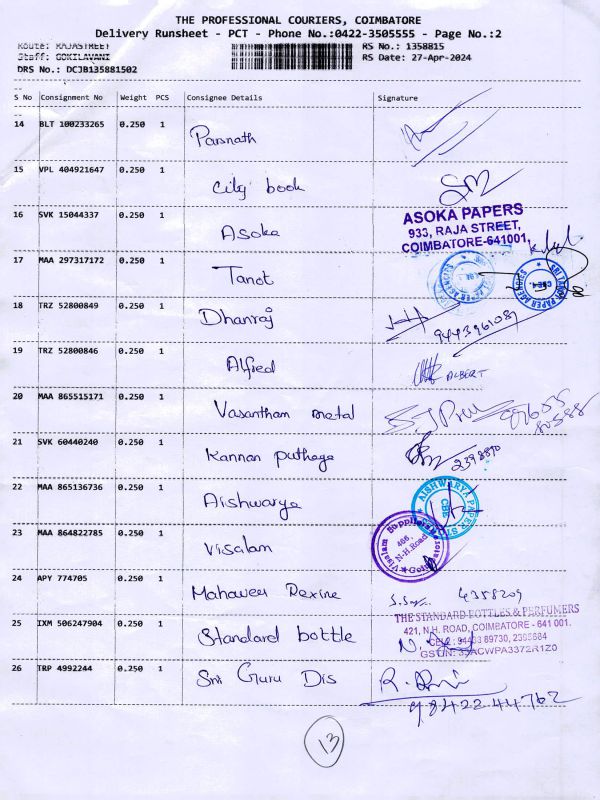 THE PROFESSIONAL COURIERS, COIMBATORE
Delivery Runsheet - PCT - Phone No.:0422-3505555 - Page No.:2
Route: RAJASTREET
RS No.: 1358815
Staff: GOKILAVANI
RS Date: 27-Apr-2024
DRS No.: DCJB135881502
S No Consignment No Weight PCS Consignee Details Signature
14 BLT 100233265 0.250 1 Parsnath
15 VPL 404921647 0.250 1 City book
16 SVK 15044337 0.250 1 Asoka
ASOKA PAPERS
933, RAJA STREET,
COIMBATORE-641001,
17 MAA 297317172 0.250 1 Tanot
18 TRZ 52800849 0.250 1 Dhanraj
9443961089
19 TRZ 52800846 0.250 1 Alfred
ALBERT
20 MAA 865515171 0.250 1 Vasantham metal
21 SVK 60440240 0.250 1 Kannan puthaga
2398890
22 MAA 865136736 0.250 1 Aishwarya
AISHWARYA PAPER
CBE
23 MAA 864822785 0.250 1 Visalam
Visalam Suppliers
466,
N-H.Road
24 APY 774705 0.250 1 Mahaveer Rexine
4358209
25 IXM 506247904 0.250 1 Standard bottle
THE STANDARD BOTTLES & PERFUMERS
421, N.H. ROAD, COIMBATORE - 641 001.
CELL: 94433 89730, 2395684
GSTUN: 33ACWPA3372R1Z0
26 TRP 4992244 0.250 1 Sri Guru Dis
98422 44762
13